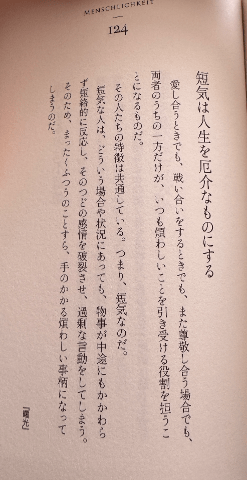 MENSCHLICHKEIT
124
短気は人生を厄介なものにする
愛し合うときでも、戦い合いをするときでも、また尊敬し合う場合でも、
両者のうちの一方だけが、いつも煩わしいことを引き受ける役割を担うこ
とになるものだ。
その人たちの特徴は共通している。つまり、短気なのだ。
短気な人は、どういう場合や状況にあっても、物事が中途にもかかわら
ず短絡的に反応し、そのつどの感情を破裂させ、過剰な言動をしてしまう。
そのため、まったくふつうのことすら、手のかかる煩わしい事柄になって
しまうのだ。
『曙光』